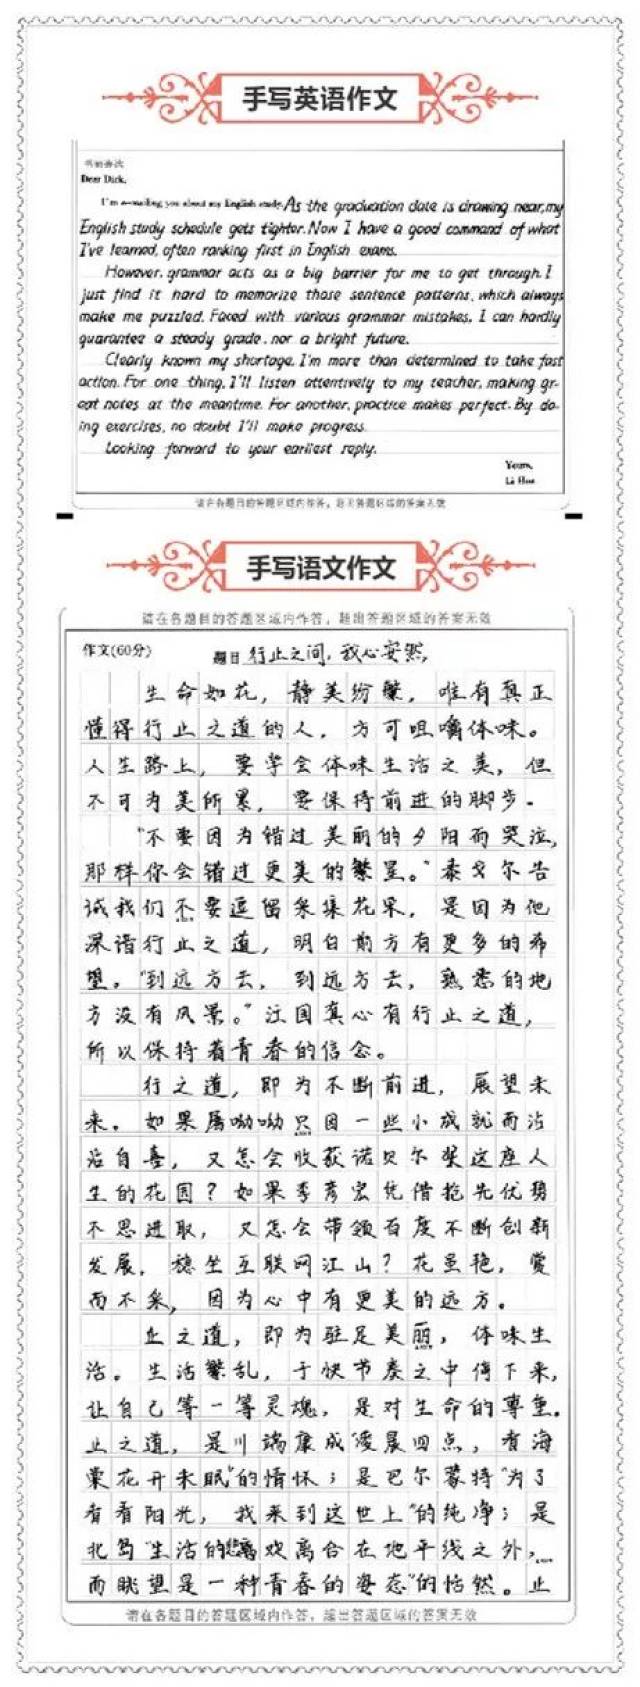 手写英语作文
书面表达
Dear Dick,
I'm e-mailing you about my English study. As the graduation date is drawing near, my
English study schedule gets tighter. Now I have a good command of what
I've learned, often ranking first in English exams.
However, grammar acts as a big barrier for me to get through. I
just find it hard to memorize those sentence patterns, which always
make me puzzled. Faced with various grammar mistakes, I can hardly
guarantee a steady grade, nor a bright future.
Clearly known my shortage, I'm more than determined to take fast
action. For one thing, I'll listen attentively to my teacher, making gr-
eat notes at the meantime. For another, practice makes perfect. By do-
ing exercises, no doubt I'll make progress.
Looking forward to your earliest reply.
Yours,
Li Hua
请在各题目的答题区域内作答，超出答题区域的答案无效
手写语文作文
请在各题目的答题区域内作答，超出答题区域的答案无效
作文(60分) 题目 行止之间，我心安然
生命如花，静美纷繁，唯有真正
懂得行止之道的人，方可咀嚼体味。
人生路上，要学会体味生活之美，但
不可为美所累，要保持前进的脚步。
“不要因为错过美丽的夕阳而哭泣，
那样你会错过更美的繁星。”泰戈尔告
诫我们不要逗留采集花果，是因为他
深谙行止之道，明白前方有更多的希
望。“到远方去，到远方去，熟悉的地
方没有风景。”汪国真心有行止之道，
所以保持着青春的信念。
行之道，即为不断前进，展望未
来。如果屠呦呦只因一些小成就而沾
沾自喜，又怎会收获诺贝尔奖这座人
生的花园？如果李彦宏凭借抢先优势
不思进取，又怎会带领百度不断创新
发展，稳坐互联网江山？花虽艳，赏
而不采，因为心中有更美的远方。
止之道，即为驻足美丽，体味生
活。生活繁乱，于快节奏之中停下来，
让自己等一等灵魂，是对生命的尊重。
止之道，是川端康成“凌晨四点，看海
棠花开未眠”的情怀；是巴尔蒙特“为了
看看阳光，我来到这世上”的纯净；是
北岛“生活的悲欢离合在地平线之外，
而眺望是一种青春的姿态”的恬然。止
请在各题目的答题区域内作答，超出答题区域的答案无效